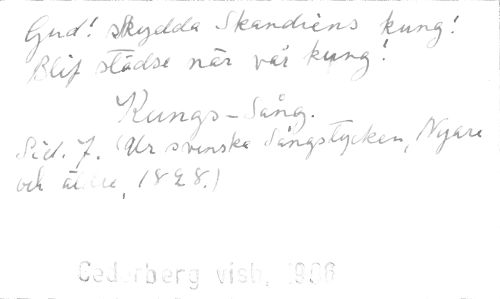 Gud! skydda Skandiens kung!
Blif städse när vår kung!
Kungs-Sång.
Sid. 7. (Ur svenska Sångstycken, Nyare
och äldre, 1828.)
Cederberg visb, 1986